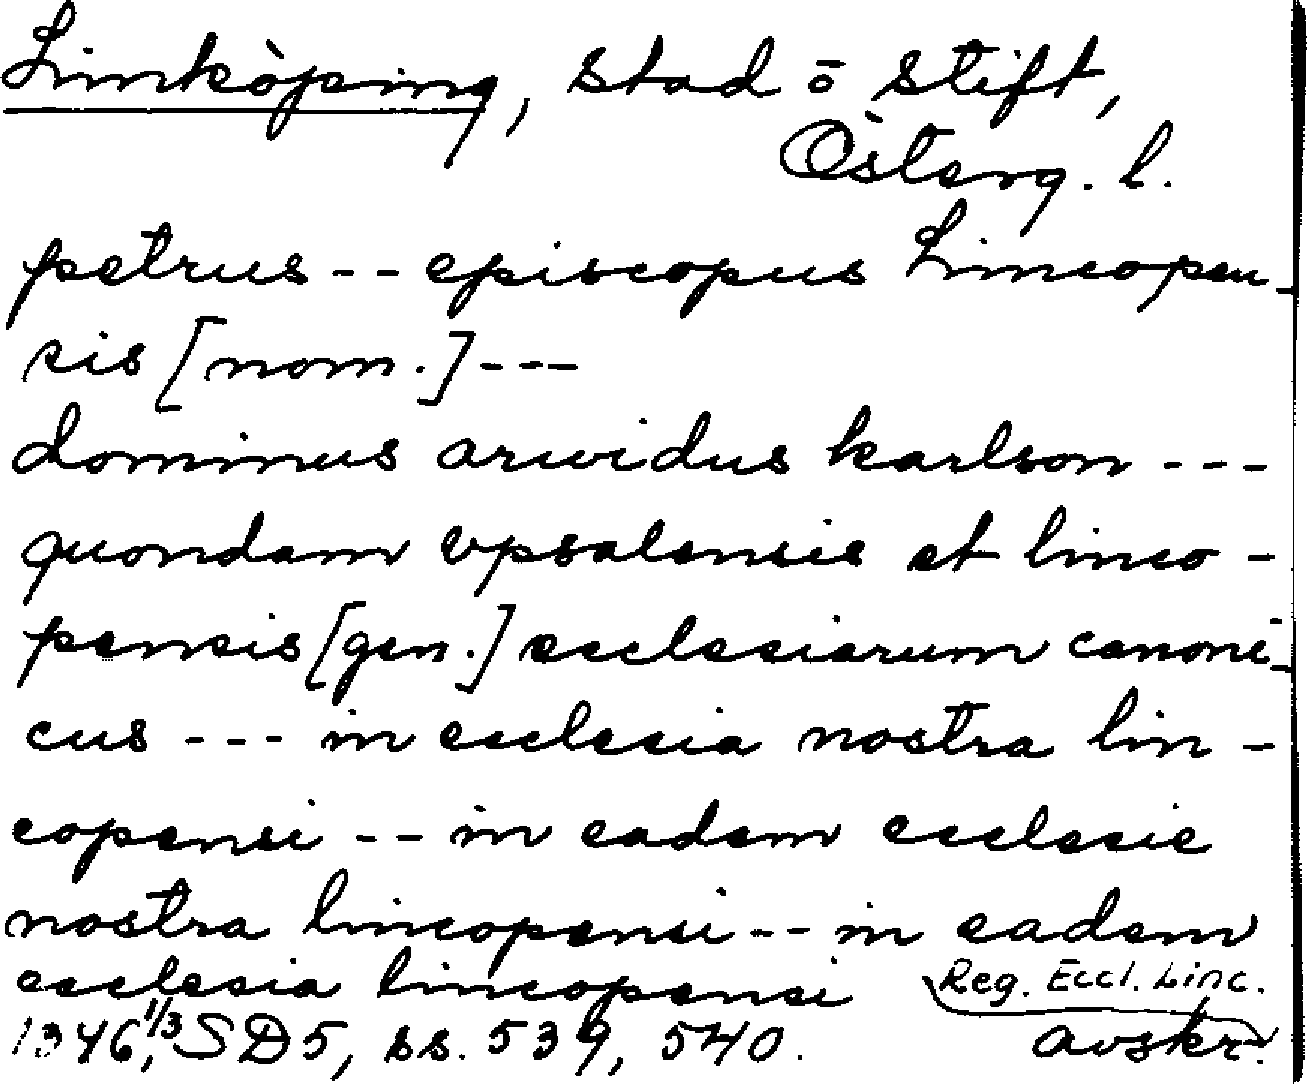 Linköping, stad o stift,
Österg. l.
petrus -- episcopus Lincopen-
sis [nom.] ---
dominus arwidus karlson ---
quondam vpsalensis et linco-
pensis [gen.] ecclesiarum canoni-
cus --- in ecclesia nostra lin-
copensi -- in eadem ecclesie
nostra lincopensi -- in eadem
ecclesia lincopensi Reg. Eccl. Linc.
1346, 1/3 SD 5, ss. 539, 540. avskr.